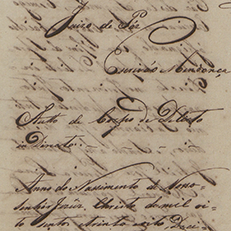 Juizo de Paz
Escrivão Mendonça
Auto de Corpo de Delicto
indirecto
Anno do Nascimento de Nosso
Senhor Jezus Christo de mil oi
to centos trinta e oito